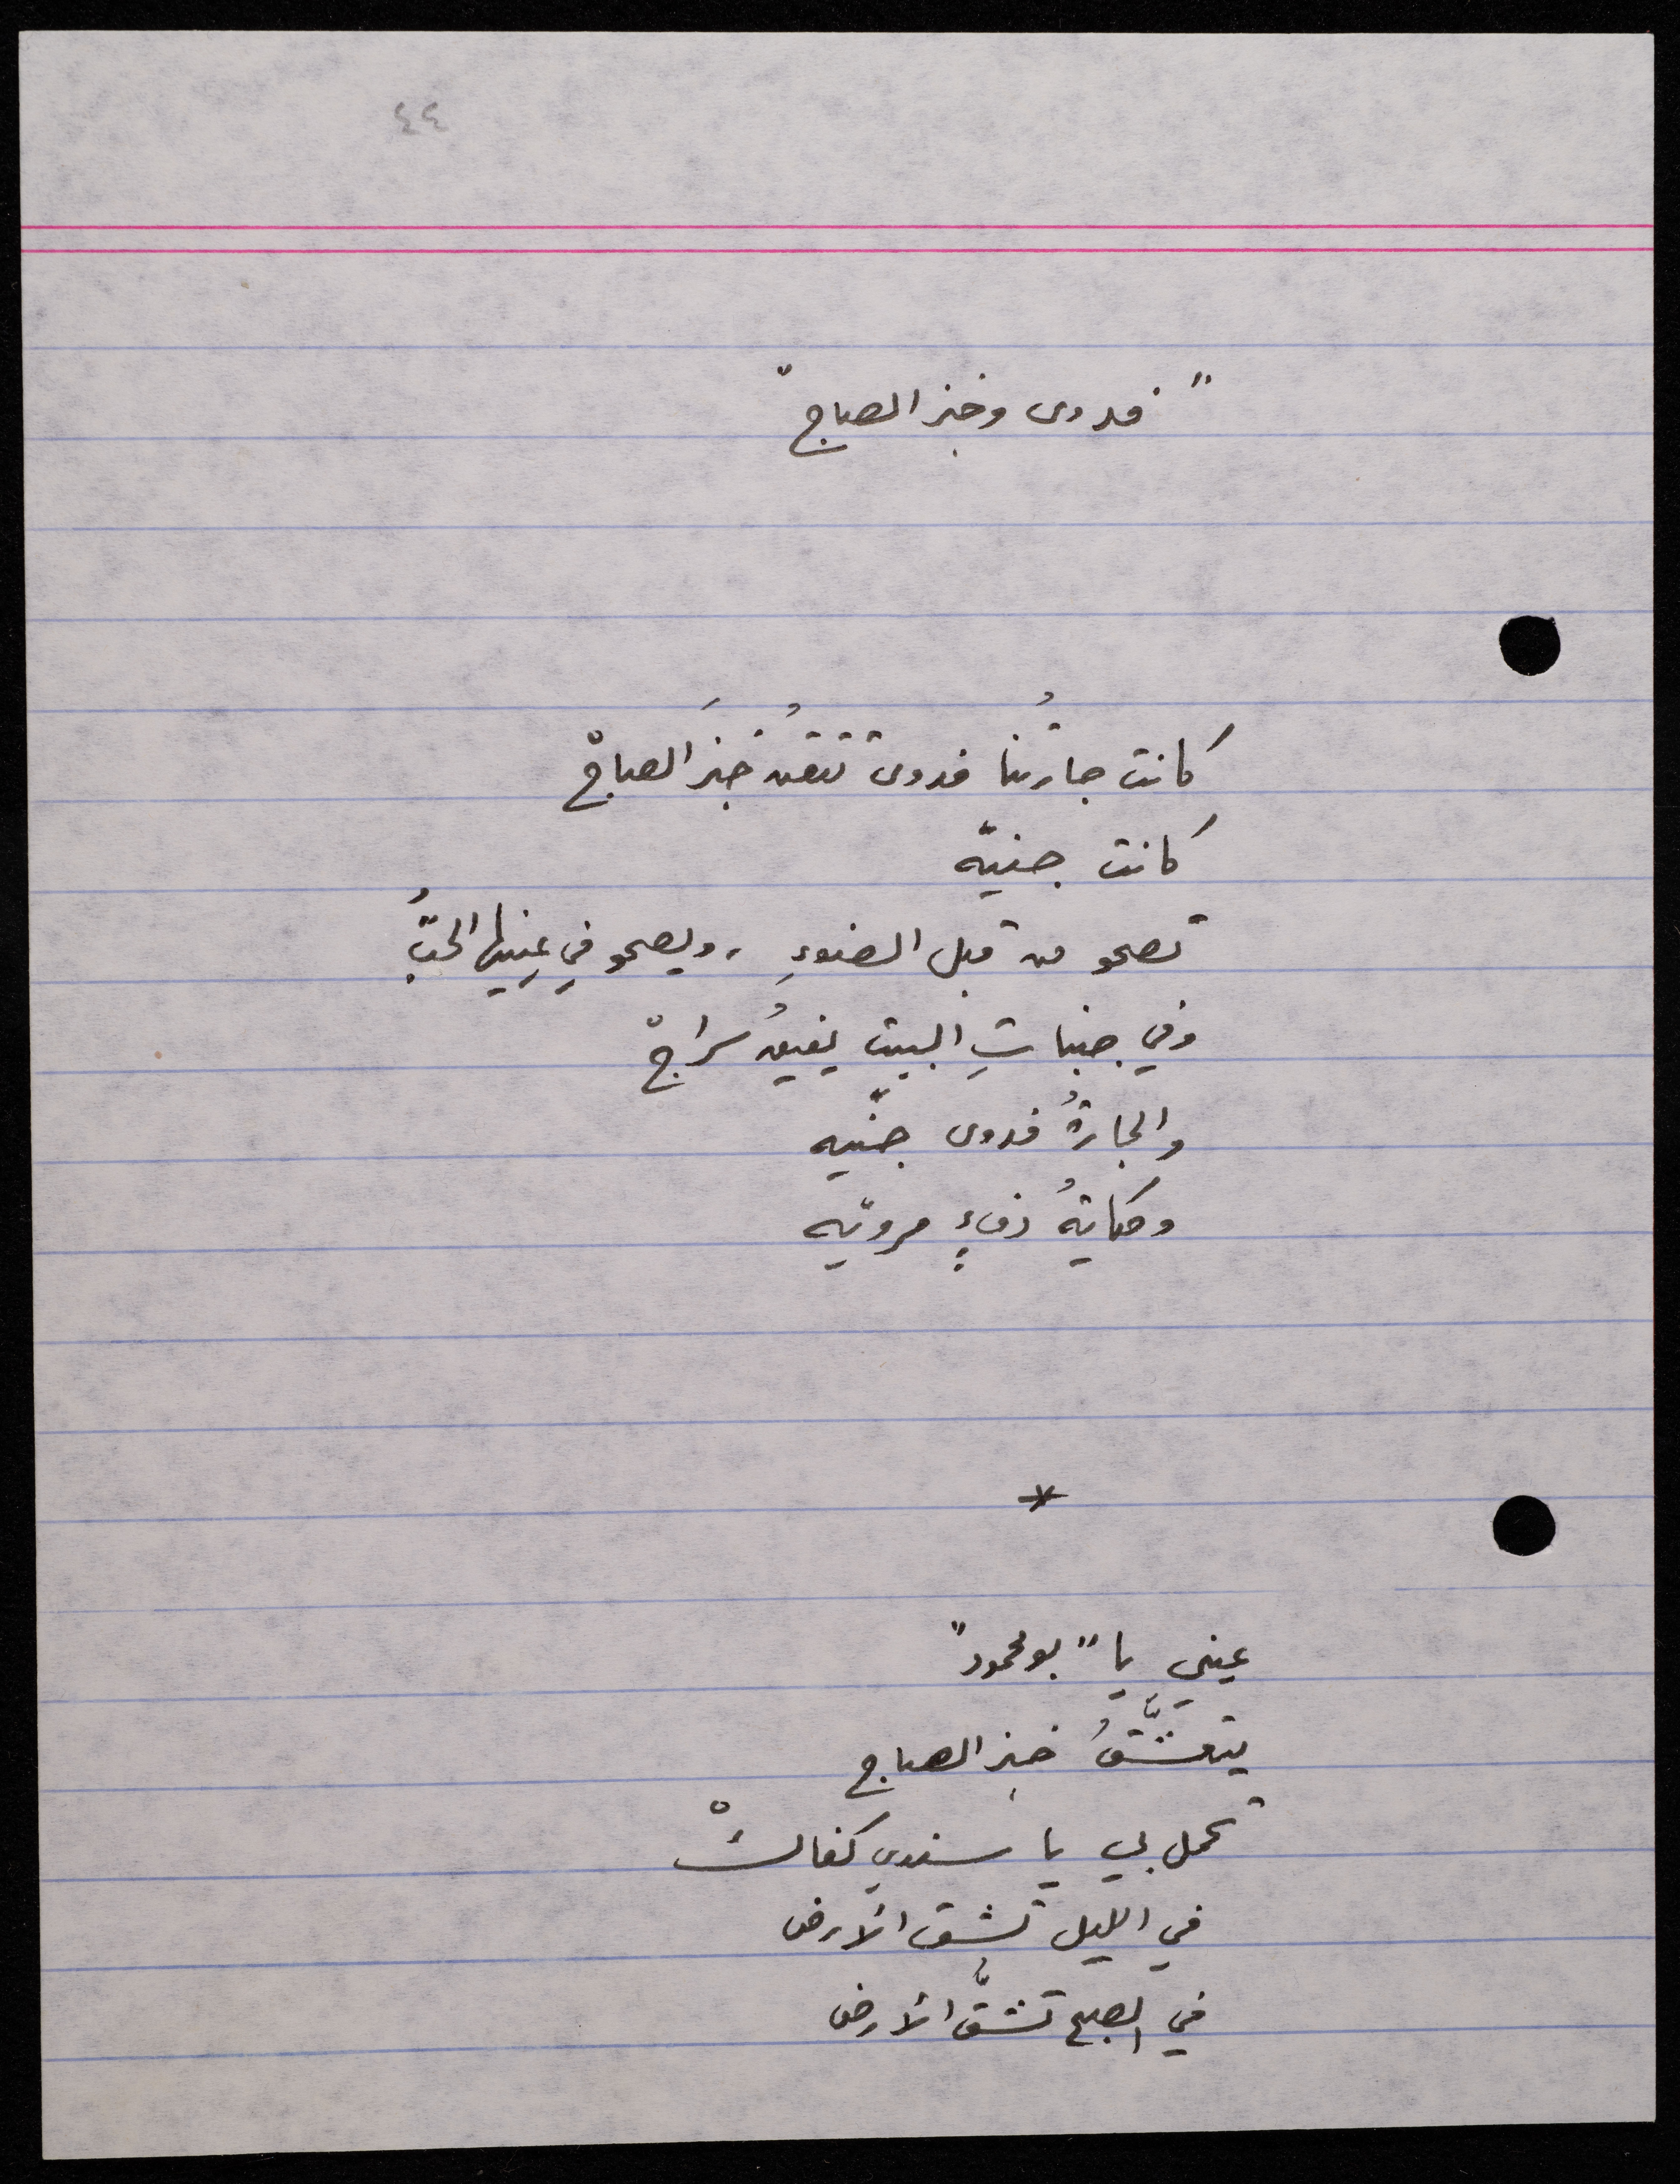 ٤٤
"فدوى وخبز الصاج"
كانت جارتُنا فدوى تتقنُ خبزَ الصاجْ
كانت جنيّه
تصحو من قبل الضوءِ ، ويصحو في عينيها الحبُّ
وفي جنباتِ البيت يفيقُ سراجْ
والجارةُ فدوى جنّيه
وحكايةُ دفءٍ مرويّه
*
عيني يا "بو محمود"
يتعشَّقُ خبز الصاج
تحمل لي يا سندي كفاكْ
في الليل تشق الأرض
في الصبح تشقُّ الأرض